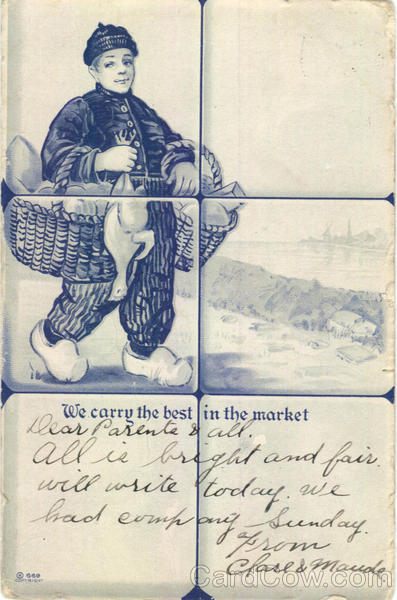 We carry the best in the market
Dear Parents & all.
All is bright and fair.
will write today. We
had company Sunday.
From
Clare & Maude
© 669
COPYRIGHT
CardCow.com